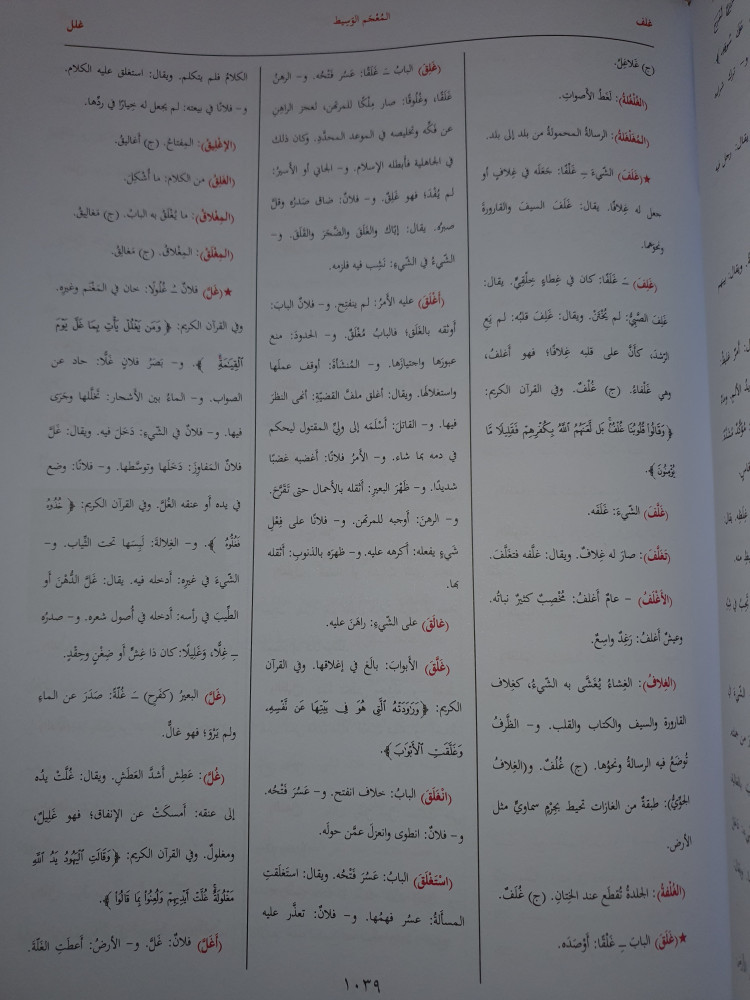 غلف
المُعْجَم الوَسِيط
غلل
(ج) غَلاغِلُ.
(الغَلْغَلَةُ): لغَطُ الأصواتِ.
(المُغَلْغَلَةُ): الرسالةُ المحمولةُ من بلد إلى بلد.
★(غَلَفَ) الشيءَ ــِ غَلْفًا: جَعَلَه في غِلافٍ أو
جعل له غِلافًا. يقال: غَلَفَ السيفَ والقارورةَ
ونحوَهما.
(غَلِفَ) ــَ غَلَفًا: كان في غِطاءٍ خِلْقِيٍّ. يقال:
غَلِفَ الصَّبِيُّ: لم يُخْتَنْ. ويقال: غَلِفَ قلبُه: لم يَعِ
الرُّشدَ، كأنَّ على قلبه غِلافًا؛ فهو أغلفُ،
وهي غَلْفاءُ. (ج) غُلْفٌ. وفي القرآن الكريم:
﴿وَقَالُوا۟ قُلُوبُنَا غُلْفٌۢ بَل لَّعَنَهُمُ ٱللَّهُ بِكُفْرِهِمْ فَقَلِيلًا مَّا
يُؤْمِنُونَ﴾.
(غَلَّفَ) الشيءَ: غَلَفَه.
(تَغَلَّفَ): صارَ له غِلافٌ. ويقال: غلَّفه فتغَلَّفَ.
(الأَغْلَفُ) - عامٌ أغلفُ: مُخْصِبٌ كثيرٌ نباتُه.
وعيشٌ أغلفُ: رَغِدٌ واسِعٌ.
(الغِلافُ): الغِشاءُ يُغَشَّى به الشيءُ، كغِلاف
القارورة والسيف والكتاب والقلب. و– الظَّرفُ
تُوضَعُ فيه الرسالةُ ونحوُها. (ج) غُلُفٌ. و(الغِلافُ
الجَوِّيُّ): طبقةٌ من الغازات تحيط بجِرْمٍ سماويٍّ مثل
الأرض.
(الغُلْفةُ): الجلدةُ تُقطَع عند الخِتانِ. (ج) غُلَفٌ.
★(غَلَقَ) البابَ ــِ غَلْقًا: أَوْصَدَه.
(غَلِقَ) البابُ ــَ غَلَقًا: عَسُرَ فَتْحُه. و– الرهنُ
غَلَقًا، وغُلُوقًا: صار مِلْكًا للمرتهن، لعجز الراهِنِ
عن فَكِّه وتخليصه في الموعد المحدَّدِ. وكان ذلك
في الجاهلية فأبطله الإسلام. و– الجاني أو الأسيرُ:
لم يُفْدَ؛ فهو غَلِقٌ. و– فلانٌ: ضاق صَدرُه وقلَّ
صبرُه. يقال: إيَّاكَ والغَلَق والضَّجَرَ والقَلَق. و–
الشيءُ في الشيءِ: نَشِب فيه فلزمه.
(أغْلَقَ) عليه الأمرُ: لم ينفتِح. و– فلانٌ البابَ:
أوثَقه بالغَلَق؛ فالبابُ مُغْلَقٌ. و– الحدودَ: منع
عبورَها واجتيازَها. و– المُنشأةَ: أوقف عملَها
واستغلالَها. ويقال: أغلق ملفَّ القضيّةِ: أنهى النظرَ
فيها. و– القاتلَ: أسْلَمَه إلى وليِّ المقتول ليحكم
في دمه بما شاء. و– الأمرُ فلانًا: أغضبه غضبًا
شديدًا. و– ظَهْرَ البعيرِ: أثقله بالأحمال حتى تَقَرَّحَ.
و– الرهنَ: أوجبه للمرتهن. و– فلانًا على فِعْلِ
شَيءٍ يفعله: أكرهه عليه. و– ظهرَه بالذنوبِ: أثقله
بها.
(غالَقَ) على الشيءِ: راهَنَ عليه.
(غَلَّقَ) الأبوابَ: بالَغَ في إغلاقِها. وفي القرآن
الكريم: ﴿وَرَٰوَدَتْهُ ٱلَّتِي هُوَ فِي بَيْتِهَا عَن نَّفْسِهِۦ
وَغَلَّقَتِ ٱلْأَبْوَٰبَ﴾.
(انْغَلَقَ) البابُ: خلاف انفتح. و– عَسُرَ فَتْحُه.
و– فلانٌ: انطوى وانعزلَ عمَّن حولَه.
(اسْتَغْلَقَ) البابُ: عَسُرَ فَتْحُه. ويقال: استغلَقتِ
المسألةُ: عسر فهمُها. و– فلانٌ: تعذَّر عليه
الكلامُ فلم يتكلم. ويقال: استغلق عليه الكلام.
و– فلانًا في بيعته: لم يجعل له خِيارًا في ردِّها.
(الإغْلِيقُ): المِفتاحُ. (ج) أغاليقُ.
(الغَلِقُ) من الكلام: ما أشْكِلَ.
(المِغْلاقُ): ما يُغْلَقُ به البابُ. (ج) مَغاليقُ.
(المِغْلَقُ): المِغْلاقُ. (ج) مَغالِقُ.
★(غَلَّ) فلانٌ ــُ غُلُولًا: خان في المَغْنَم وغيرِه.
وفي القرآن الكريم: ﴿وَمَن يَغْلُلْ يَأْتِ بِمَا غَلَّ يَوْمَ
ٱلْقِيَٰمَةِ﴾. و– بَصَرُ فلانٍ غَلًّا: حاد عن
الصواب. و– الماءُ بين الأشجار: تَخَلَّلها وجَرَى
فيها. و– فلانٌ في الشيءِ: دَخلَ فيه. ويقال: غَلَّ
فلانٌ المَفاوِزَ: دَخلَها وتوسَّطَها. و– فلانًا: وضع
في يده أو عنقه الغُلَّ. وفي القرآن الكريم: ﴿خُذُوهُ
فَغُلُّوهُ﴾. و– الغِلالةَ: لَبِسَها تحت الثِّياب. و–
الشيءَ في غيرِه: أدخله فيه. يقال: غَلَّ الدُّهْنَ أو
الطِّيبَ في رأسه: أدخله في أُصول شعرِه. و– صدرُه
ــِ غِلًّا، وغَلِيلًا: كان ذا غِشٍّ أو ضِغْنٍ وحِقْدٍ.
(غَلَّ) البعيرُ (كفَرِح) ــَ غُلَّةً: صَدَرَ عن الماءِ
ولم يَرْوَ؛ فهو غالٌّ.
(غُلَّ): عَطِش أشدَّ العَطَشِ. ويقال: غُلَّتْ يدُه
إلى عنقِه: أمسكَتْ عن الإنفاق؛ فهو غَلِيلٌ،
ومغلولٌ. وفي القرآن الكريم: ﴿وَقَالَتِ ٱلْيَهُودُ يَدُ ٱللَّهِ
مَغْلُولَةٌ ۚ غُلَّتْ أَيْدِيهِمْ وَلُعِنُوا۟ بِمَا قَالُوا۟﴾.
(أغَلَّ) فلانٌ: غَلَّ. و– الأرضُ: أعطَتِ الغَلّةَ.
١٠٣٩